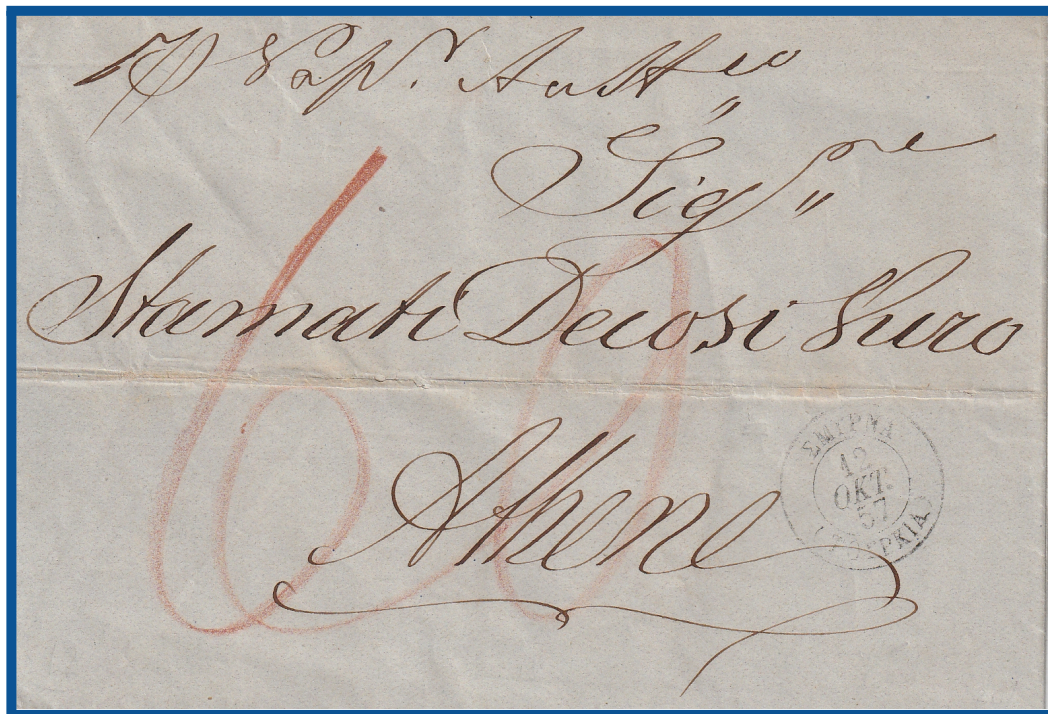 p Vap.r Aust.co
Sig.re
Stamati Decosi Vuro
Athene
60
ΣΜΙΡΝΑ
12
ΟΚΤ.
57
(ΤΟΥΡΚΙΑ)